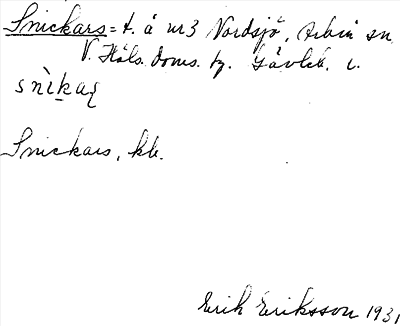 Snickars = t. å nr 3 Nordsjö, Arbrå sn,
V. Häls. doms. tg. Gävleb. l.
Snickars, kk.
Erik Eriksson 1931